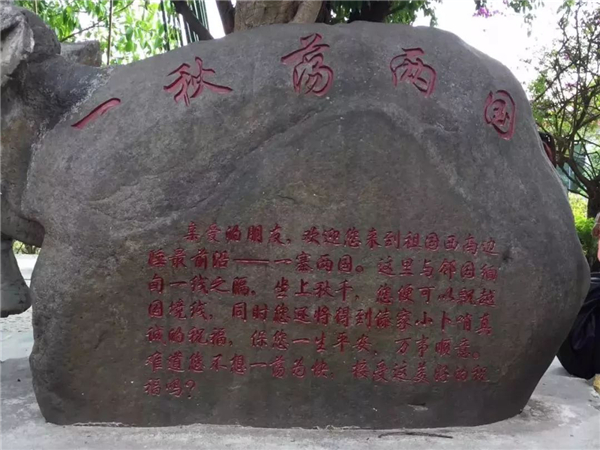 一秋荡两国
亲爱的朋友，欢迎您来到祖国西南边
陲最前沿——一寨两国。这里与邻国缅
甸一线之隔，坐上秋千，您便可以飘越
国境线，同时您还将得到傣家小卜哨真
诚的祝福，保您一生平安，万事顺意。
难道您不想一荡为快，接受这美好的祝
福吗？